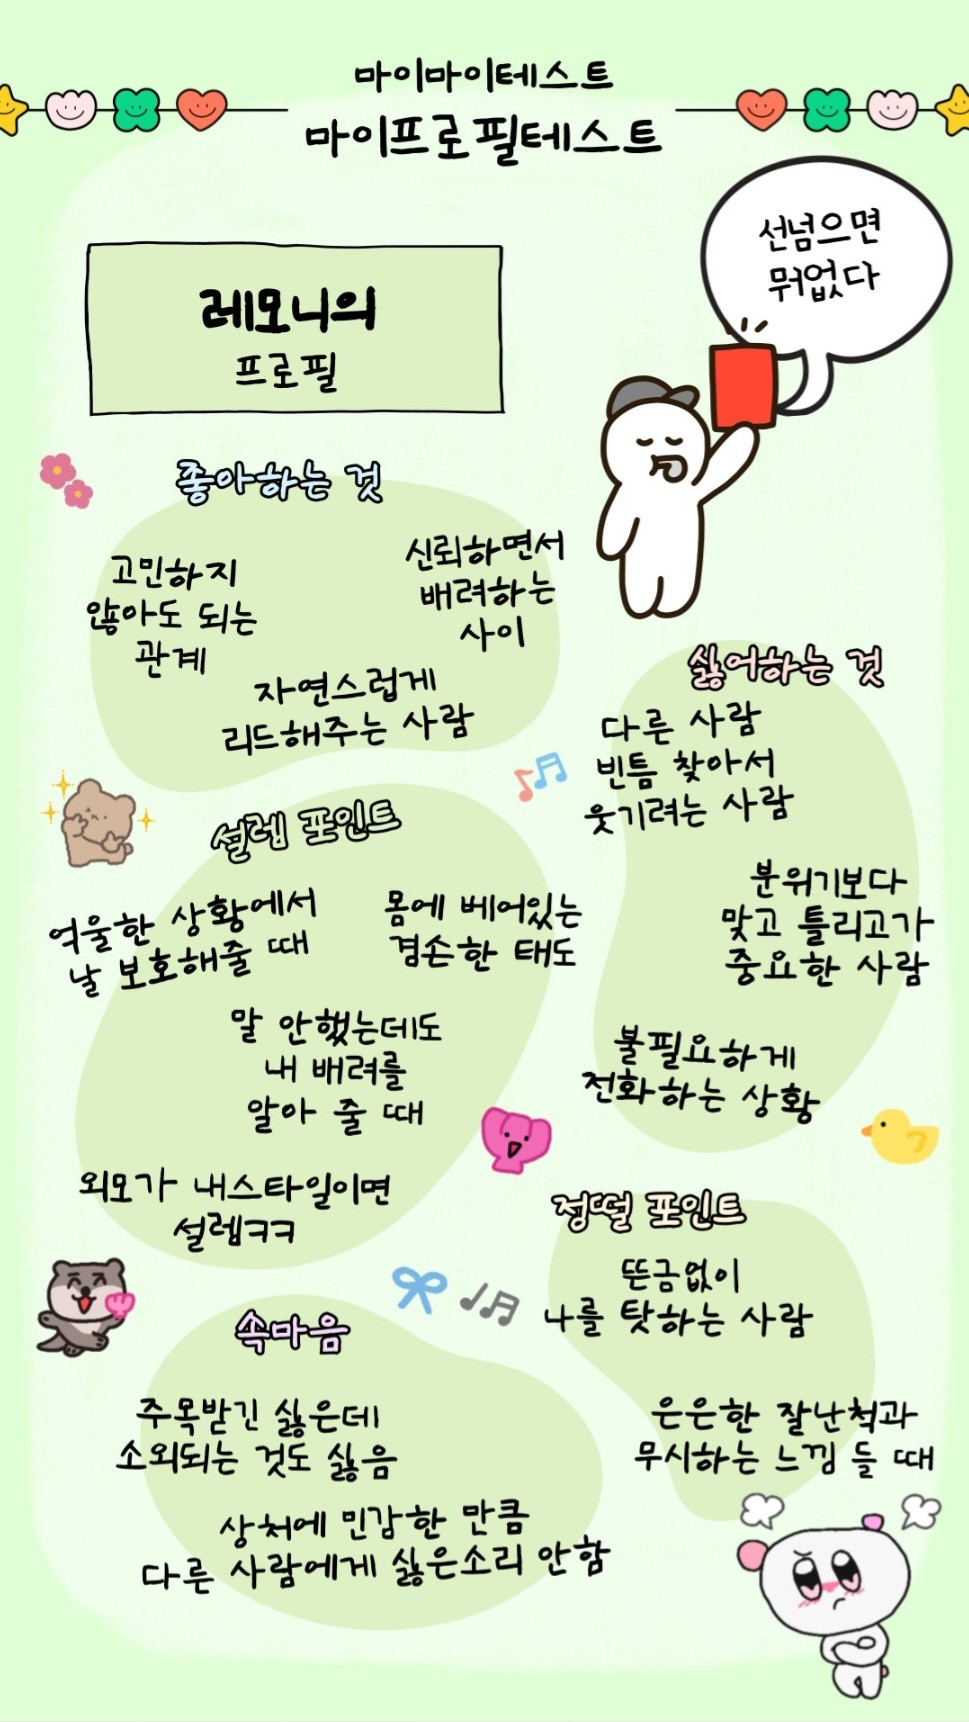 마이마이테스트
마이프로필테스트
선넘으면
뭐없다
레모니의
프로필
좋아하는 것
고민하지
않아도 되는
관계
신뢰하면서
배려하는
사이
자연스럽게
리드해주는 사람
싫어하는 것
다른 사람
빈틈 찾아서
웃기려는 사람
분위기보다
맞고 틀리고가
중요한 사람
불필요하게
전화하는 상황
설렘 포인트
억울한 상황에서
날 보호해줄 때
몸에 베어있는
겸손한 태도
말 안했는데도
내 배려를
알아 줄 때
외모가 내스타일이면
설렘ㅋㅋ
정떨 포인트
뜬금없이
나를 탓하는 사람
은은한 잘난척과
무시하는 느낌 들 때
속마음
주목받긴 싫은데
소외되는 것도 싫음
상처에 민감한 만큼
다른 사람에게 싫은소리 안함